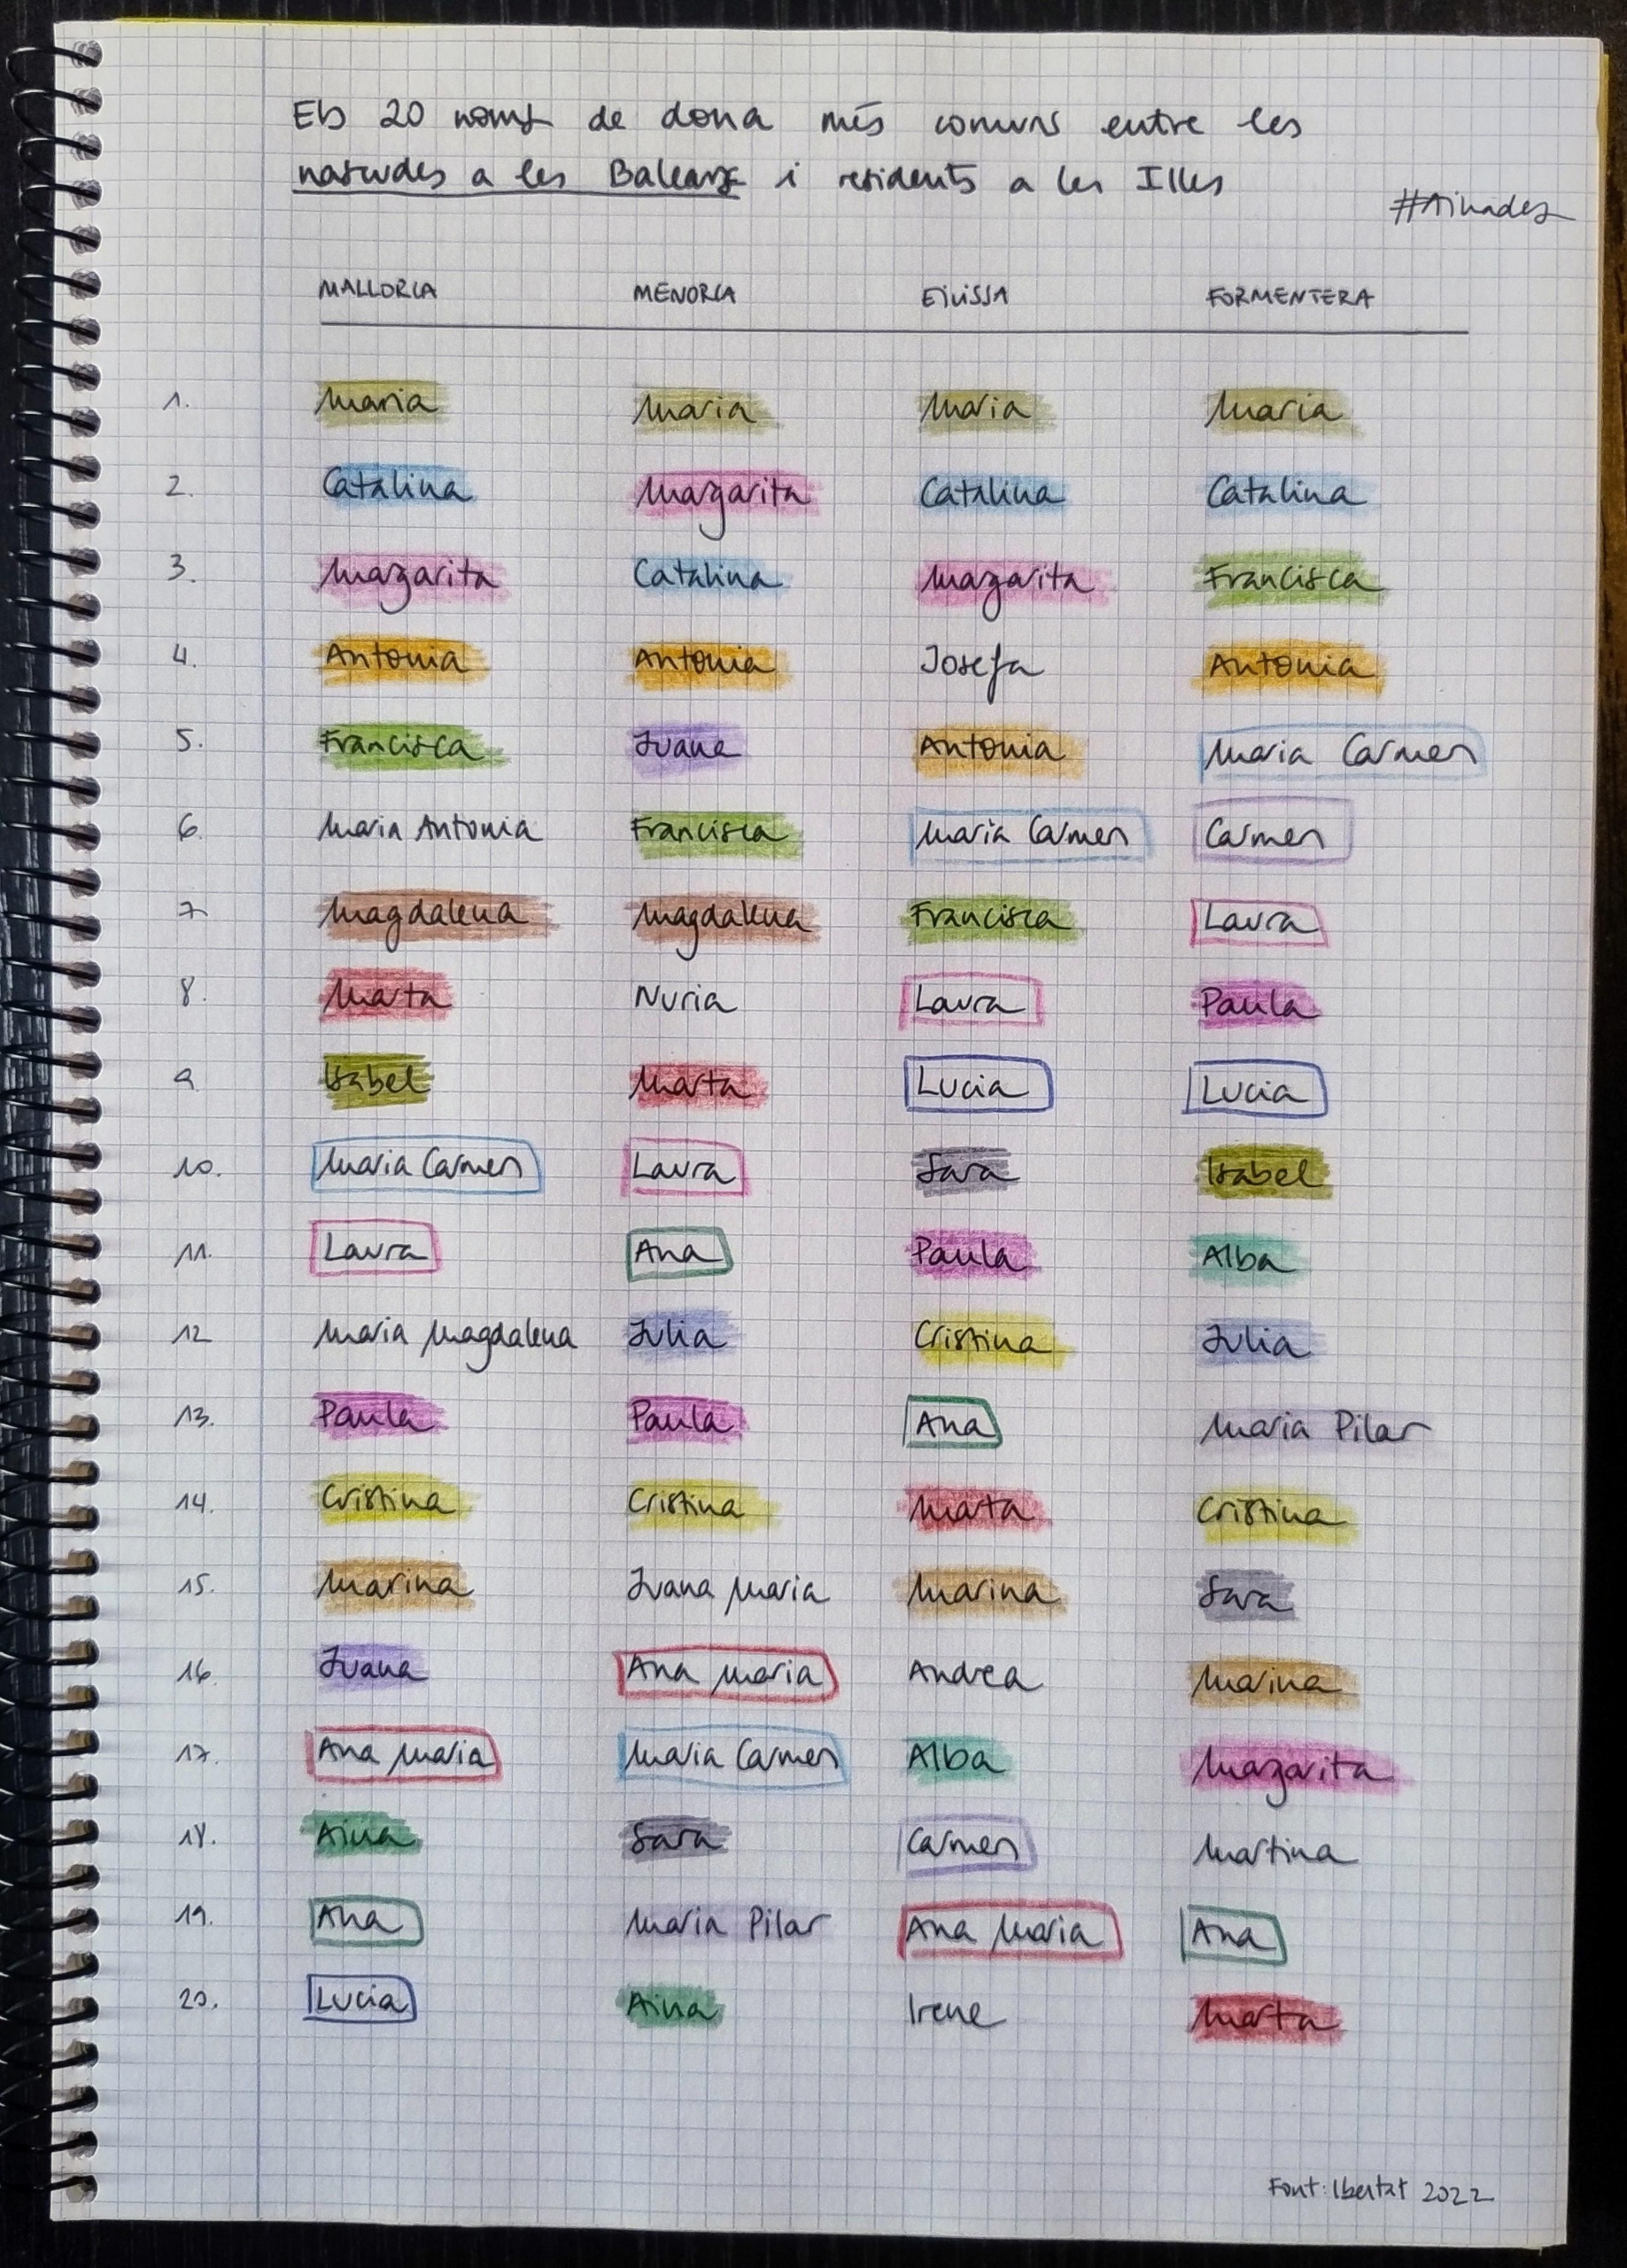 Els 20 noms de dona més comuns entre les
nascudes a les Balears i residents a les Illes
#Ainades
MALLORCA MENORCA EIVISSA FORMENTERA
1. Maria Maria Maria Maria
2. Catalina Margarita Catalina Catalina
3. Margarita Catalina Margarita Francisca
4. Antonia Antonia Josefa Antonia
5. Francisca Juana Antonia Maria Carmen
6. Maria Antonia Francisca Maria Carmen Carmen
7 Magdalena Magdalena Francisca Laura
8. Marta Nuria Laura Paula
9. Isabel Marta Lucia Lucia
10. Maria Carmen Laura Sara Isabel
11. Laura Ana Paula Alba
12 Maria Magdalena Julia Cristina Julia
13. Paula Paula Ana Maria Pilar
14. Cristina Cristina Marta Cristina
15. Marina Juana Maria Marina Sara
16. Juana Ana Maria Andrea Marina
17. Ana Maria Maria Carmen Alba Margarita
18. Aina Sara Carmen Martina
19. Ana Maria Pilar Ana Maria Ana
20. Lucia Aina Irene Marta
Font: Ibestat 2022